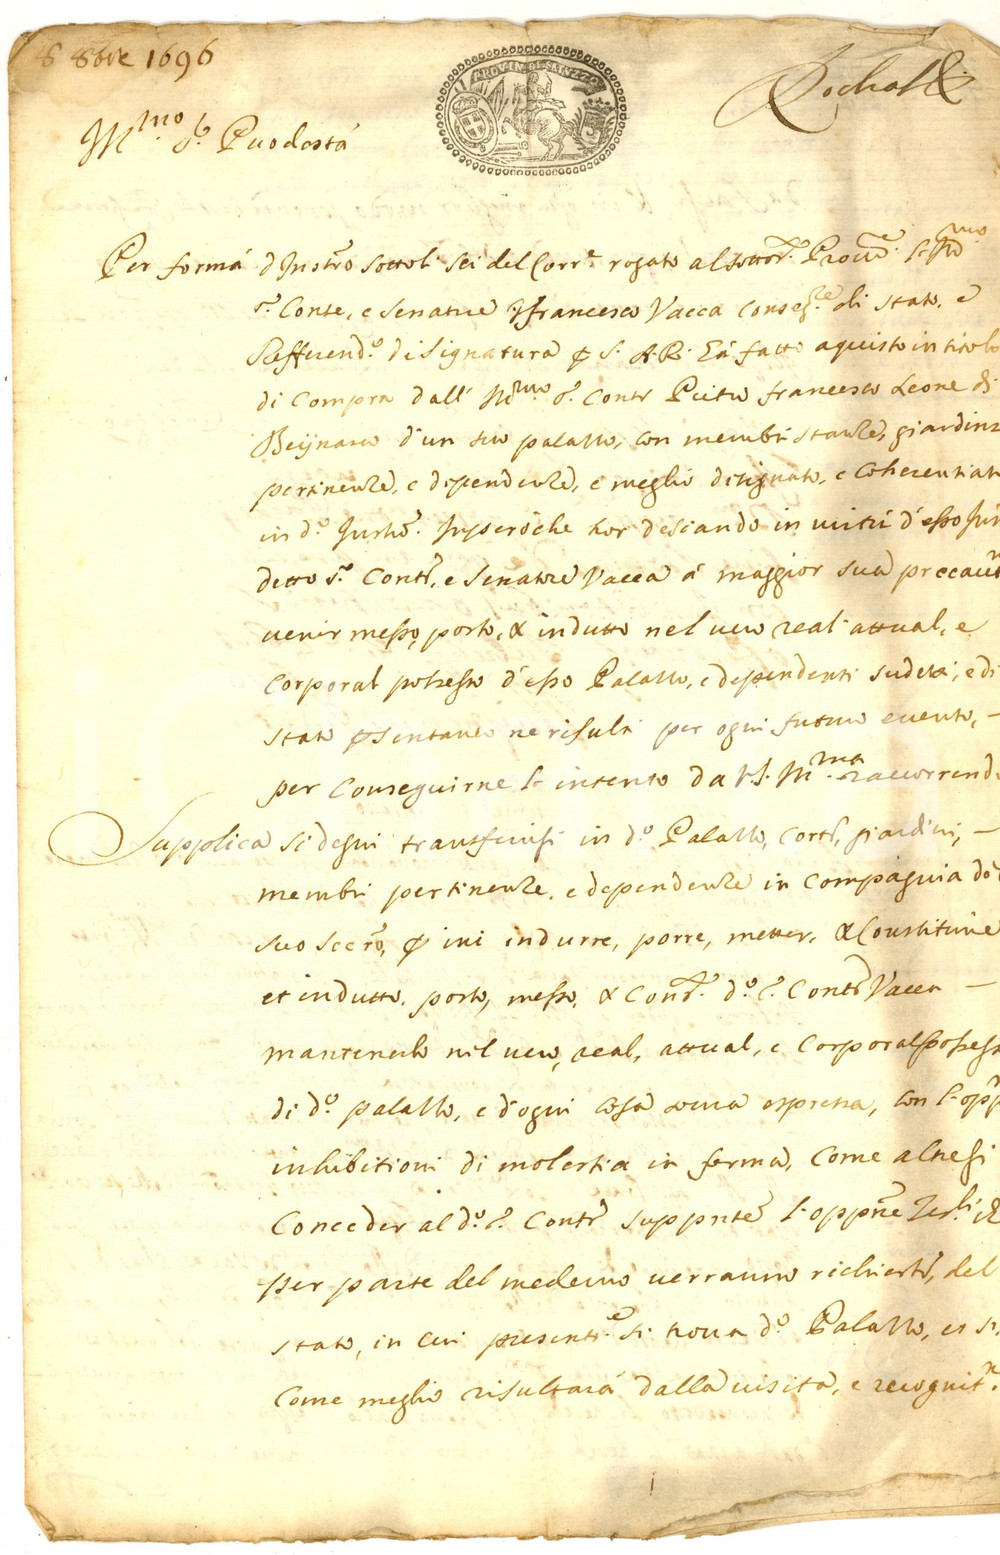 8 8bre 1696
PROVIN DI SALVZZO
M.mo S.r Puodestá
Per formá d'Instro sottol. sei del Corr.e rogato al sottor. Ill.mo
s.r Conte, e Senatore Gio francesco Vacca Conseg.re di stato, e
Refferend.o di Signatura p S. A. R. há fatto aquisto in titolo
di Compra dall' Ill.mo s.r Conte Pietro francesco Leone di
Beijnasco d'un suo palazzo, con membri stanze, giardini
pertinenze, e dependenze, e meglio desig­nato, e Coherentiato
in d.o Instro. Inperoche hor desiando in virtú d'esso
detto s.r Conte, e Senatore Vacca á maggior sua precaut
venir messo, posto, & indutto nel vero real' attual, e
Corporal possesso d'esso Palazzo, e dependenti sudeti, e di
stato p sentaneo ne risulti per ogni futuro evento, –
per Conseguirne l'intento da V.S. M.ma raccorrendo
Supplica si degni transferirsi in d.o Palazzo, Corte, giardini, –
membri pertinenze, e dependenze in Compagnia del
suo Segro, p ivi indurre, porre, metter, & Constituire
et indutto, posto, messo, & Const. d.o S.r Conte Vacca –
mantenerlo nel vero, real, attual, e Corporal possesso
di d.o palazzo, e d'ogni Cosa sovra espressa, con l'opp
inhibitioni di molestia in forma, Come altresi
Conceder al d.o S.r Conte suppnte l'oppne Testi.li
per parte del medemo verranno richieste, del
stato, in cui presenti.e si trova d.o Palazzo, et si
Come meglio risultará dalla visita, e recognit.n